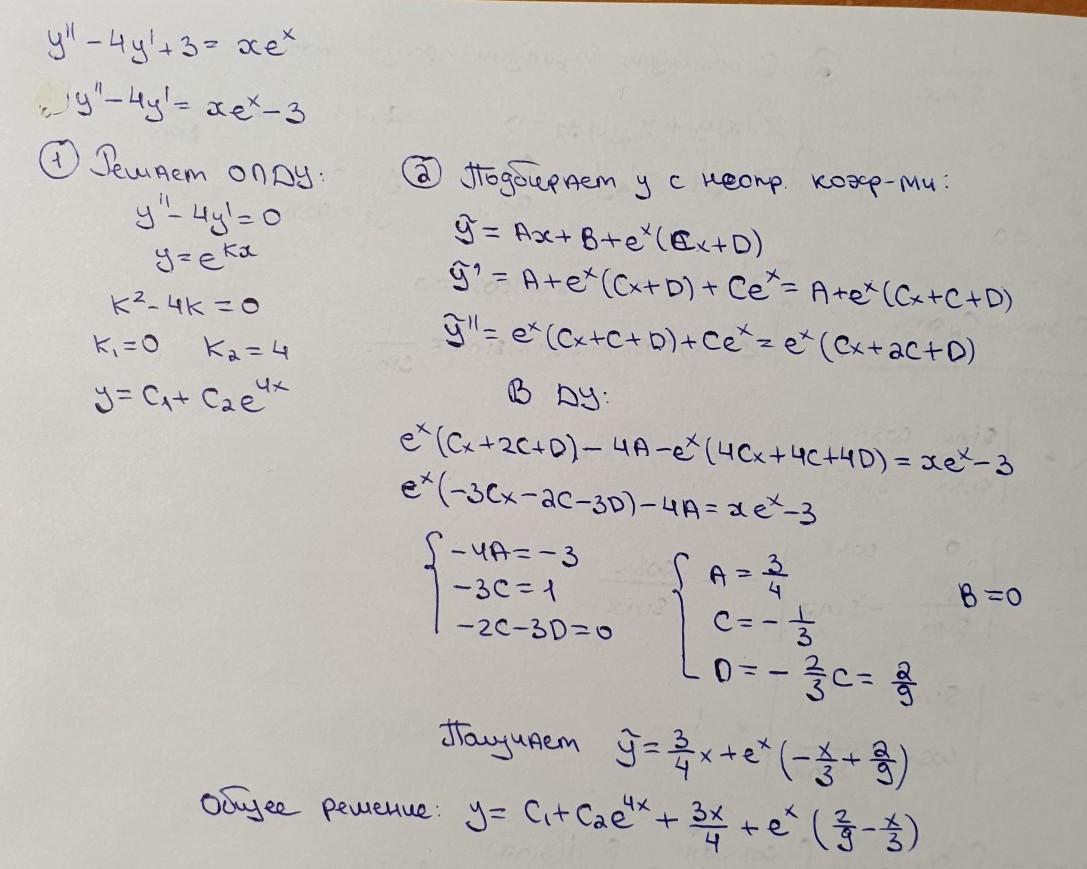 y'' - 4y' + 3 = xeˣ
y'' - 4y' = xeˣ - 3
① Решаем ОЛДУ:
y'' - 4y' = 0
y = e^{kx}
k² - 4k = 0
k₁ = 0 k₂ = 4
y = C₁ + C₂e^{4x}
② Подбираем y с неопр. коэф-ми:
ỹ = Ax + B + eˣ(Cx + D)
ỹ' = A + eˣ(Cx + D) + Ceˣ = A + eˣ(Cx + C + D)
ỹ'' = eˣ(Cx + C + D) + Ceˣ = eˣ(Cx + 2C + D)
В ДУ:
eˣ(Cx + 2C + D) - 4A - eˣ(4Cx + 4C + 4D) = xeˣ - 3
eˣ(-3Cx - 2C - 3D) - 4A = xeˣ - 3
-4A = -3
-3C = 1
-2C - 3D = 0
A = 3/4
C = -1/3
D = -2/3 C = 2/9
B = 0
Получаем ỹ = 3/4 x + eˣ(-x/3 + 2/9)
Общее решение: y = C₁ + C₂e^{4x} + 3x/4 + eˣ(2/9 - x/3)